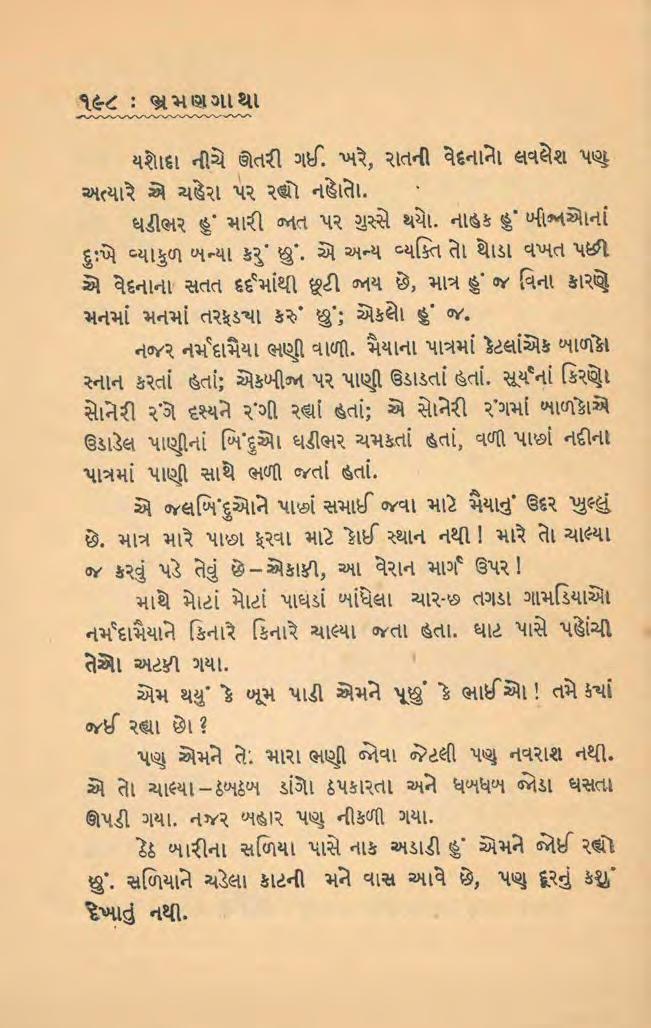 ૧૯૮ : ભ્રમણગાથા
યશોદા નીચે ઊતરી ગઈ. ખરે, રાતની વેદનાનો લવલેશ પણ
અત્યારે એ ચહેરા પર રહ્યો નહોતો.
ઘડીભર હું મારી જાત પર ગુસ્સે થયો. નાહક હું બીજાઓનાં
દુઃખે વ્યાકુળ બન્યા કરું છું. એ અન્ય વ્યક્તિ તો થોડા વખત પછી
એ વેદનાના સતત દર્દમાંથી છૂટી જાય છે, માત્ર હું જ વિના કારણે
મનમાં મનમાં તરફડ્યા કરું છું; એકલો હું જ.
નજર નર્મદામૈયા ભણી વાળી. મૈયાના પાત્રમાં કેટલાંએક બાળકો
સ્નાન કરતાં હતાં; એકબીજા પર પાણી ઉડાડતાં હતાં. સૂર્યનાં કિરણો
સોનેરી રંગે દૃશ્યને રંગી રહ્યાં હતાં; એ સોનેરી રંગમાં બાળકોએ
ઉડાડેલ પાણીનાં બિંદુઓ ઘડીભર ચમકતાં હતાં, વળી પાછાં નદીના
પાત્રમાં પાણી સાથે ભળી જતાં હતાં.
એ જલબિંદુઓને પાછાં સમાઈ જવા માટે મૈયાનું ઉદર ખુલ્લું
છે. માત્ર મારે પાછા ફરવા માટે કોઈ સ્થાન નથી! મારે તો ચાલ્યા
જ કરવું પડે તેવું છે–એકાકી, આ વેરાન માર્ગ ઉપર!
માથે મોટાં મોટાં પાઘડાં બાંધેલા ચાર-છ તગડા ગામડિયાઓ
નર્મદામૈયાને કિનારે કિનારે ચાલ્યા જતા હતા. ઘાટ પાસે પહોંચી
તેઓ અટકી ગયા.
એમ થયું કે બૂમ પાડી એમને પૂછું કે ભાઈઓ! તમે ક્યાં
જઈ રહ્યા છો?
પણ એમને તો મારા ભણી જોવા જેટલી પણ નવરાશ નથી.
એ તો ચાલ્યા–ઠબઠબ ડાંગો ઠપકારતા અને ધબધબ જોડા ઘસતા
ઊપડી ગયા. નજર બહાર પણ નીકળી ગયા.
ઠેઠ બારીના સળિયા પાસે નાક અડાડી હું એમને જોઈ રહ્યો
છું. સળિયાને ચડેલા કાટની મને વાસ આવે છે, પણ દૂરનું કશું
દેખાતું નથી.